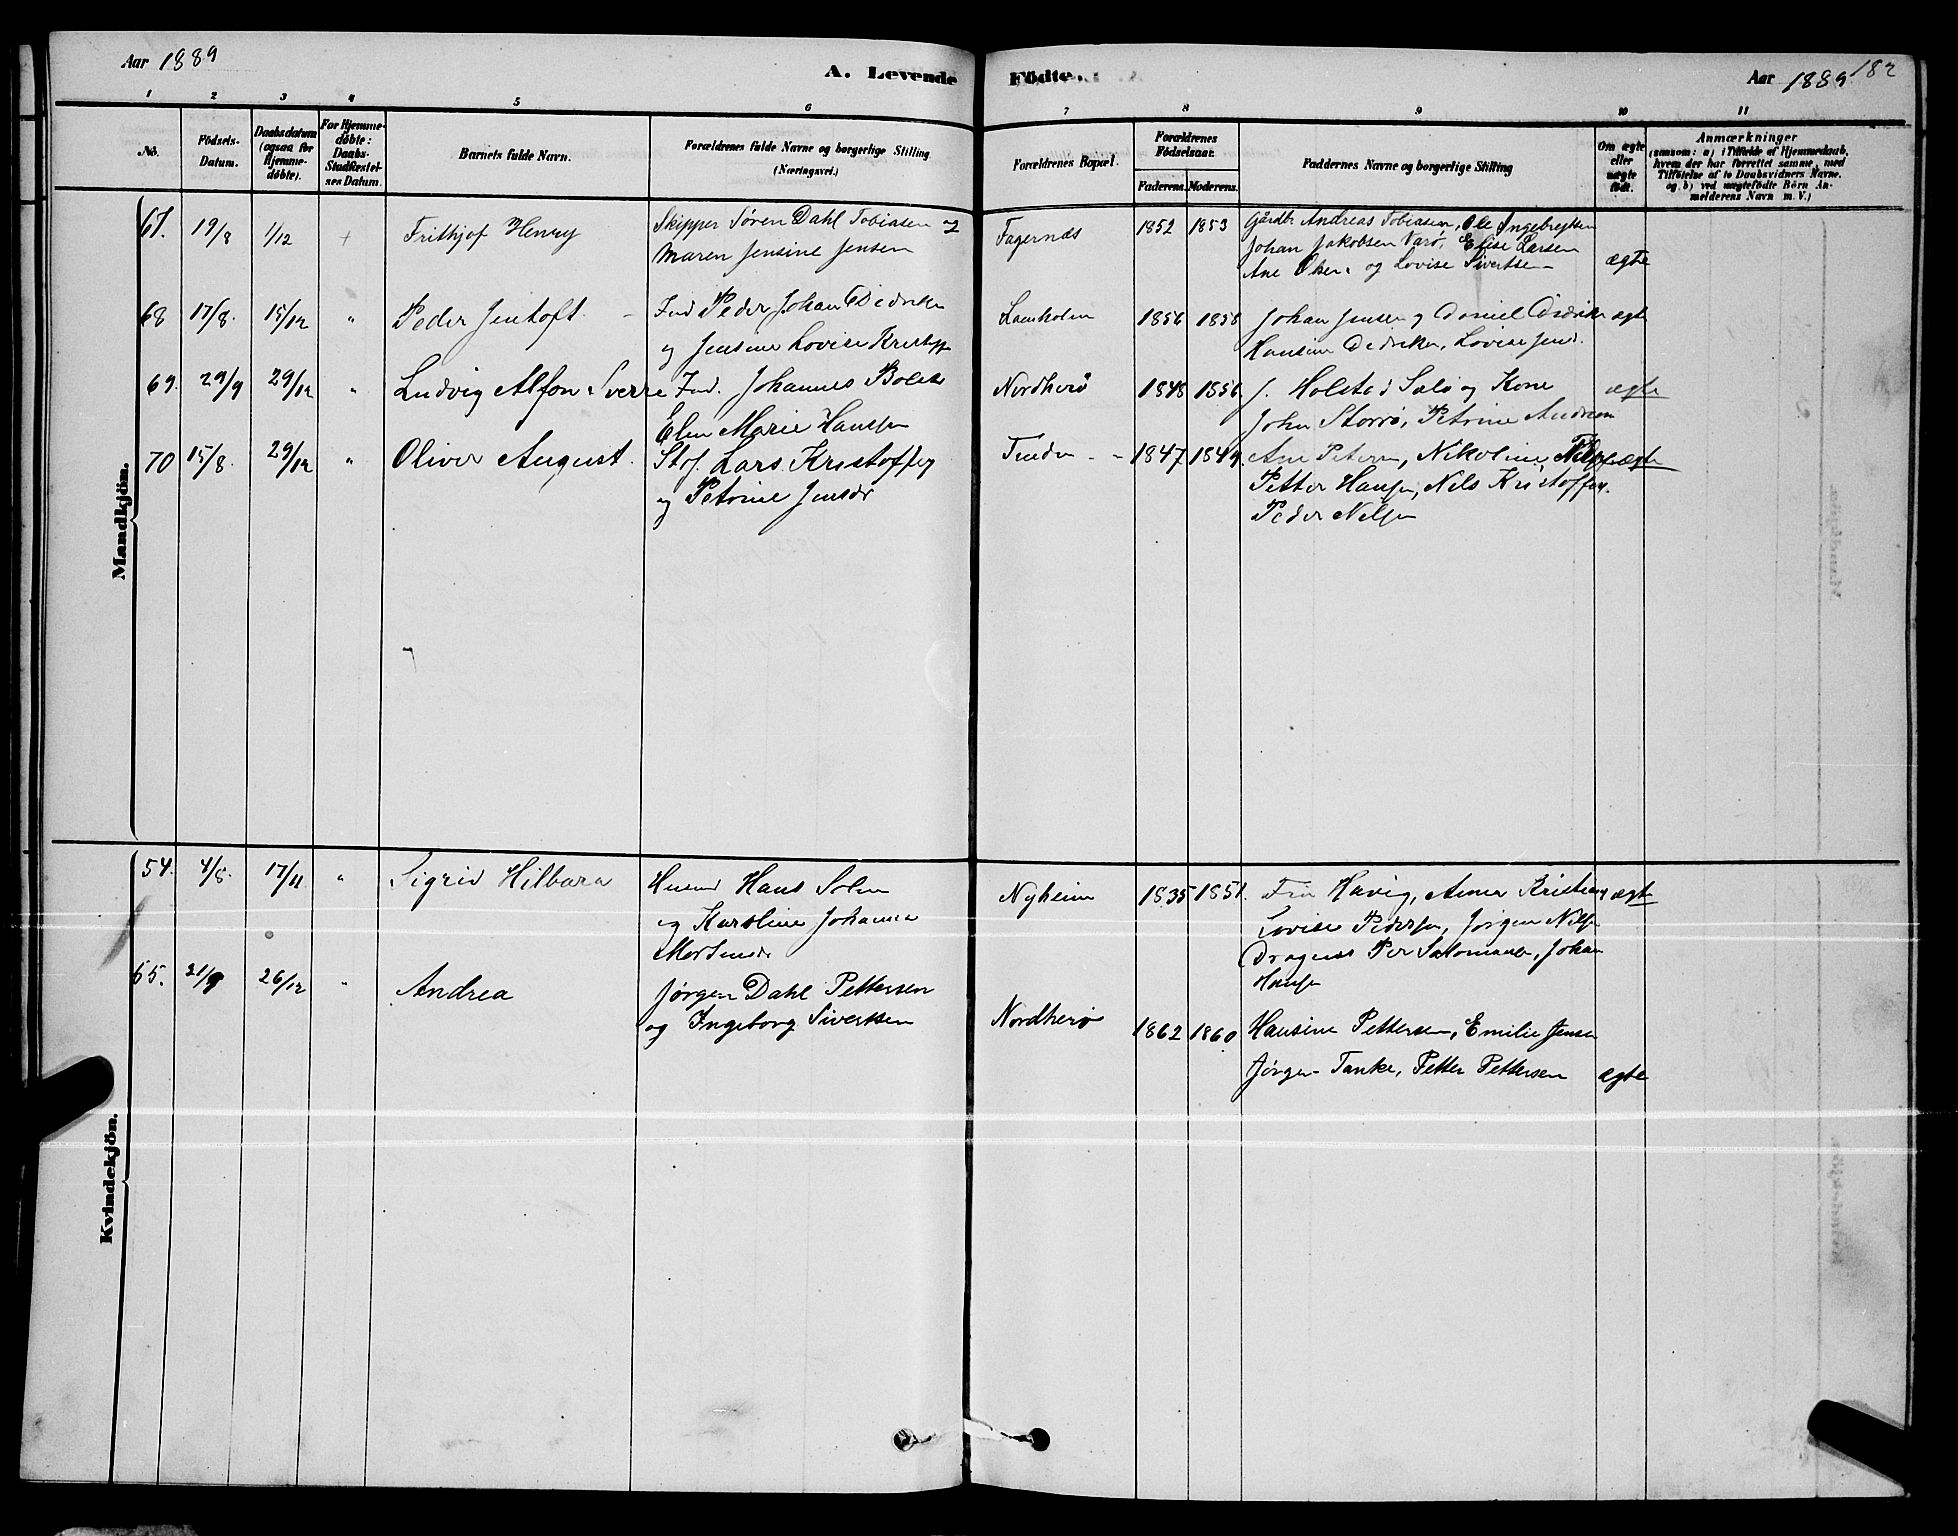 Aar 1889
A. Levende Födte.
Aar 1889 182
1 2 3 4 5 6 7 8 9 10 11
No.
Födsels-Datum.
Daabsdatum (ogsaa for Hjemme-döbte).
For Hjemme-döbte: Daabs-Stadfæstel-ses Datum.
Barnets fulde Navn.
Forældrenes fulde Navne og borgerlige Stilling (Næringsvei.)
Forældrenes Bopæl.
Forældrenes Födselsaar.
Faderens. Moderens.
Faddernes Navne og borgerlige Stilling
Om ægte eller uægte födt.
Anmærkninger
(saasom: a) i Tilfælde af Hjemmedaab,
hvem der har forrettet samme, med
Tilföielse af to Daabsvidners Navne.
og b) ved uægtefödte Börn An-
melderens Navn m. V.)
Mandkjön.
67. 19/8 1/12 Frithjof Henry Skipper Søren Dahl Tobiasen og Fagernæs 1852 1853 Gårdbr Andreas Tobiasen, Ole Ingebregtsen
Maren Jensine Jensen Johan Jakobsen Varø, Elise Larsen
Ane Olsen og Lovise Sivertsen ægte
68 17/8. 15/12 " Peder Jentoft Ind Peder Johan Didriks 1856 1858 Johan Jensen og Daniel Didriks ægte
og Jensine Lovise Kristoff Hansine Didriks, Lovise Jens.
69. 29/9 29/12 " Ludvig Alfon Sverre Ind. Johannes Nordherø 1848 1856. J. Holstad Sølø og Kone ægte
Elen Marie Hansen John Storrø, Petrine Andreas
70 15/8. 29/12 " Oliver August. Lars Kristoffer 1847 1849. Ane Peters, Nikoline ægte
og Petrine Jensdr Petter Hansen, Nils Kristoffer.
Peder Nilsen
Kvindekjön.
54. 4/8. 17/11 " Sigrid Hilbara Husmd Hans Nyheim 1835 1851. Havig, Anna Kristians ægte
og Karoline Johanna Lovise Pedersen, Jørgen Nilsen
Mortensdr Dragnes Per Salomonsen, Johan
Hansen
55. 21/9 26/12 " Andrea Jørgen Dahl Pettersen Nordherø 1862 1860 Hansine Pettersen, Emilie Jensen
og Ingeborg Sivertsen Jørgen Tanke, Petter Pettersen ægte